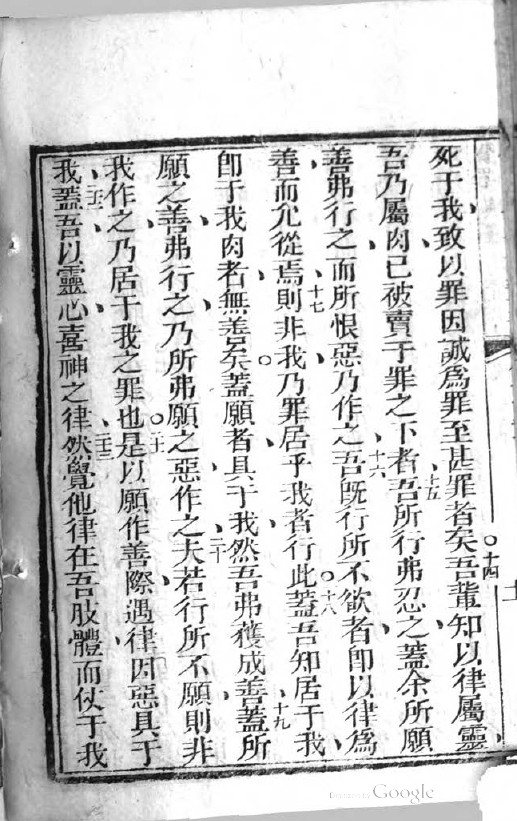 死于我致以罪因誡爲罪至甚罪者矣○十四吾輩知以律屬靈
吾乃屬肉已被賣于罪之下者十五吾所行弗忍之蓋余所願
善弗行之而所恨惡乃作之十六吾旣行所不欲者卽以律爲
善而允從焉十七則非我乃罪居乎我者行此○十八蓋吾知居于我
卽于我肉者無善矣蓋願者具于我然吾弗獲成善十九蓋所
願之善弗行之乃所弗願之惡作之二十夫若行所不願則非
我作之乃居于我之罪也○二一是以願作善際遇律因惡具于
我二二蓋吾以靈心喜神之律二三然覺他律在吾肢體而仗于我
Google